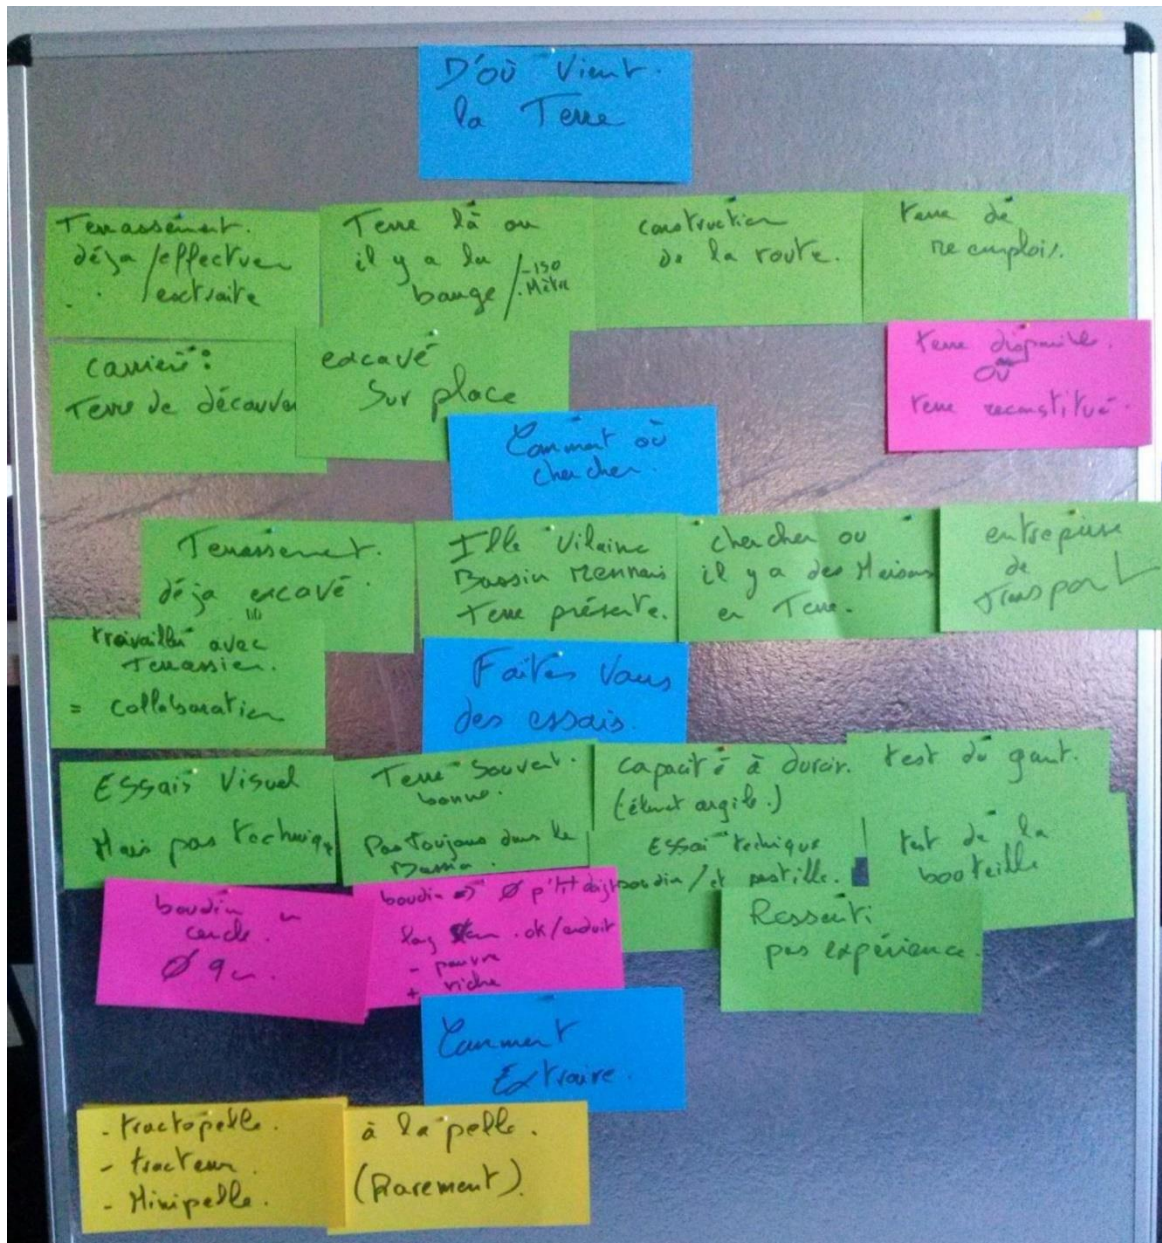 D'où vient
la Terre
Terrassement.
déja / effectuer
/ extraite
Terre là ou
il y a la
bauge / -150
. Mètre
construction
de la route.
terre de
reemploi.
carrière :
Terre de découver
excavé
sur place
terre disponible.
où
terre reconstitué.
Comment où
chercher.
Terrassement.
déja excavé.
Ille Vilaine
Bassin Rennais
terre présente.
chercher ou
il y a des Maisons
en Terre.
entreprise
de
Transport
travailler avec
Terrassier.
= collaboration
Faites Vous
des essais.
ESSais Visuel
Mais pas technique
Terre souvent.
bonne.
Pas toujours dans le
Bassin.
capacité à durcir.
(élément argile.)
test du gant.
ESSai technique
boudin / et pastille.
test de la
booteille
boudin
cercle.
Ø 9
boudin => Ø p'tit doigt
long . ok / enduit
- pauvre
+ riche
Ressenti
pas expérience.
Comment
Extraire.
- tractopelle.
- tracteur.
- Minipelle.
à la pelle.
(Rarement).